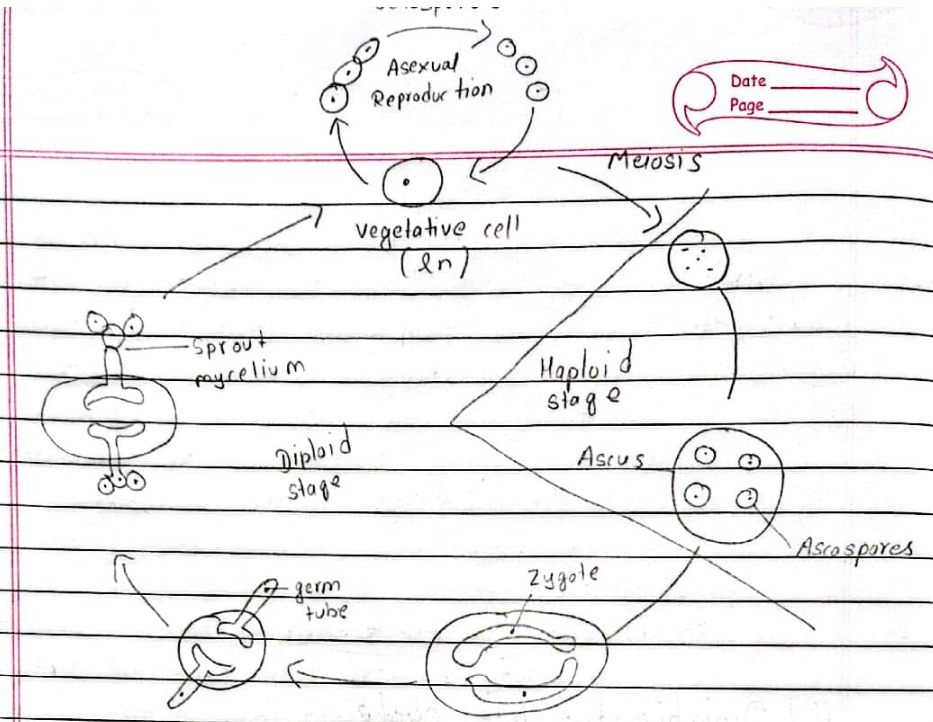 Asexual
Reproduction
Date
Page
Meiosis
vegetative cell
(2n)
Sprout
mycelium
Haploid
stage
Diploid
stage
Ascus
Ascospores
Zygote
germ
tube